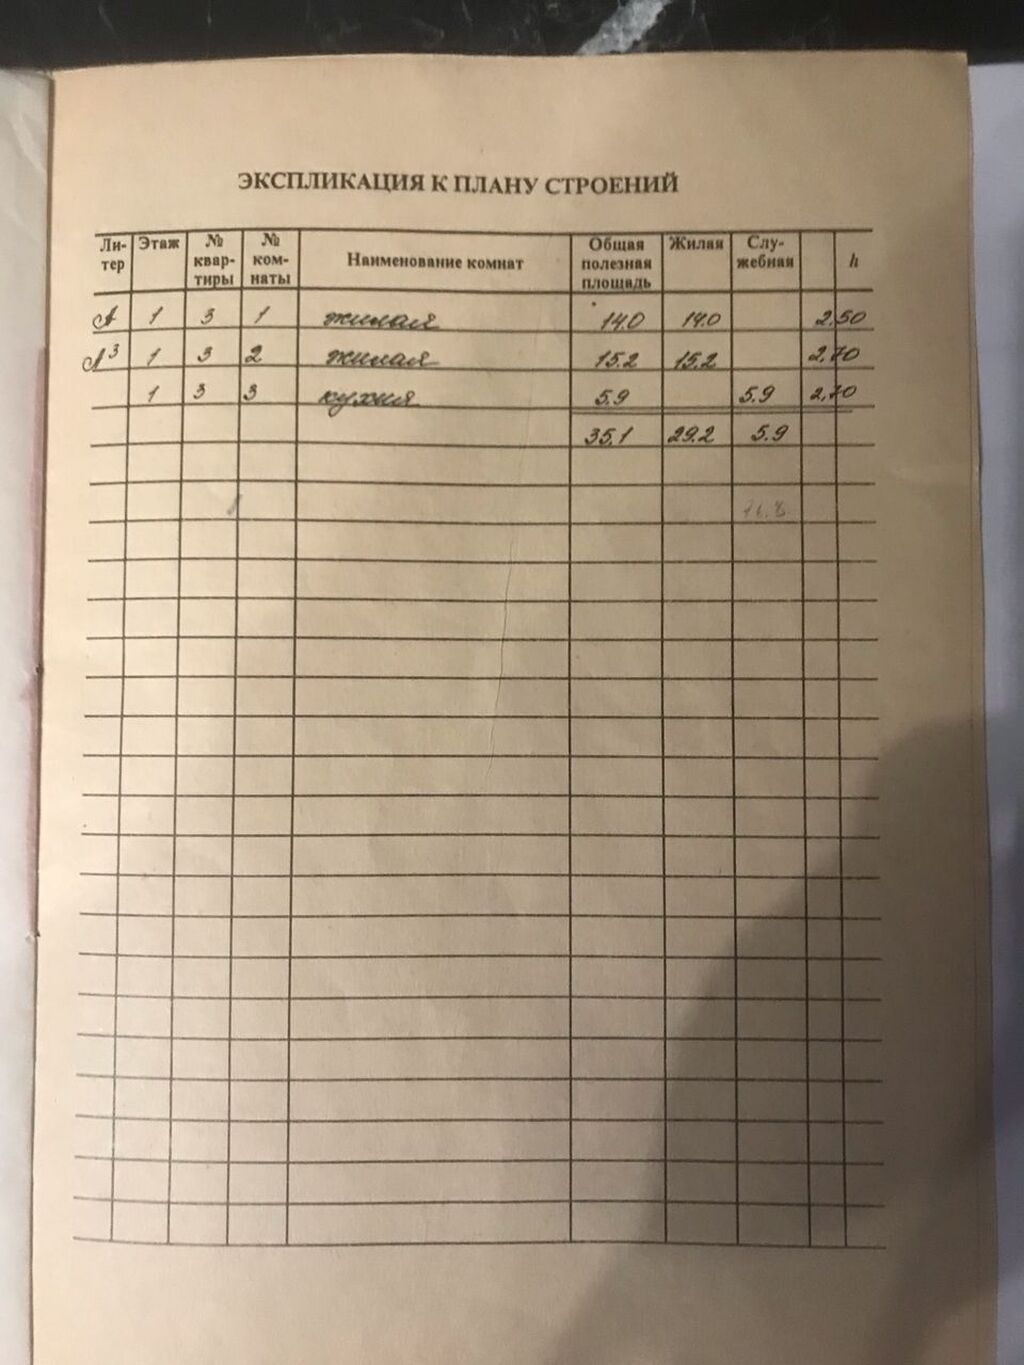 ЭКСПЛИКАЦИЯ К ПЛАНУ СТРОЕНИЙ
Ли-тер Этаж № квар-тиры № ком-наты Наименование комнат Общая полезная площадь Жилая Слу-жебная h
А 1 3 1 жилая 14.0 14.0 2,50
А3 1 3 2 жилая 15.2 15.2 2,70
1 3 3 кухня 5.9 5.9 2,70
35.1 29.2 5.9